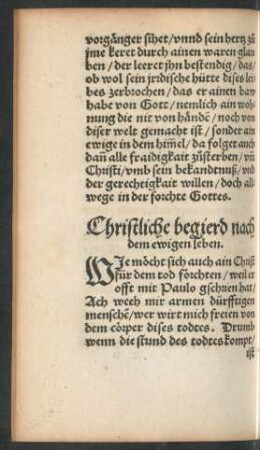 vorgånger sihet/vnnd sein hertz zů
jme keret durch ainen waren glau
ben/der leeret jhn bestendig/das/
ob wol sein jrdische hütte dises lei
bes zerbrochen/das er ainen baw
habe von Gott/nemlich ain woh
nung die nit von hånde͂/noch von
diser welt gemacht ist/sonder ain
ewige in dem him̃el/da folget auch
dan̄ alle fraidigkait zůsterben/vn̄
Christi/vmb sein bekandtnuß/vnd
der gerechtigkait willen/doch all
wege in der forchte Gottes.
Christliche begjerd nach
dem ewigen leben.
WIe möcht sich auch ain Christ
für dem tod förchten/weil er
offt mit Paulo gschrien hat/
Ach weeh mir armen dürfftigen
mensche͂/wer wirt mich freien von
dem cörper dises todtes. Drumb
wenn die stund des todtes kompt/
ist